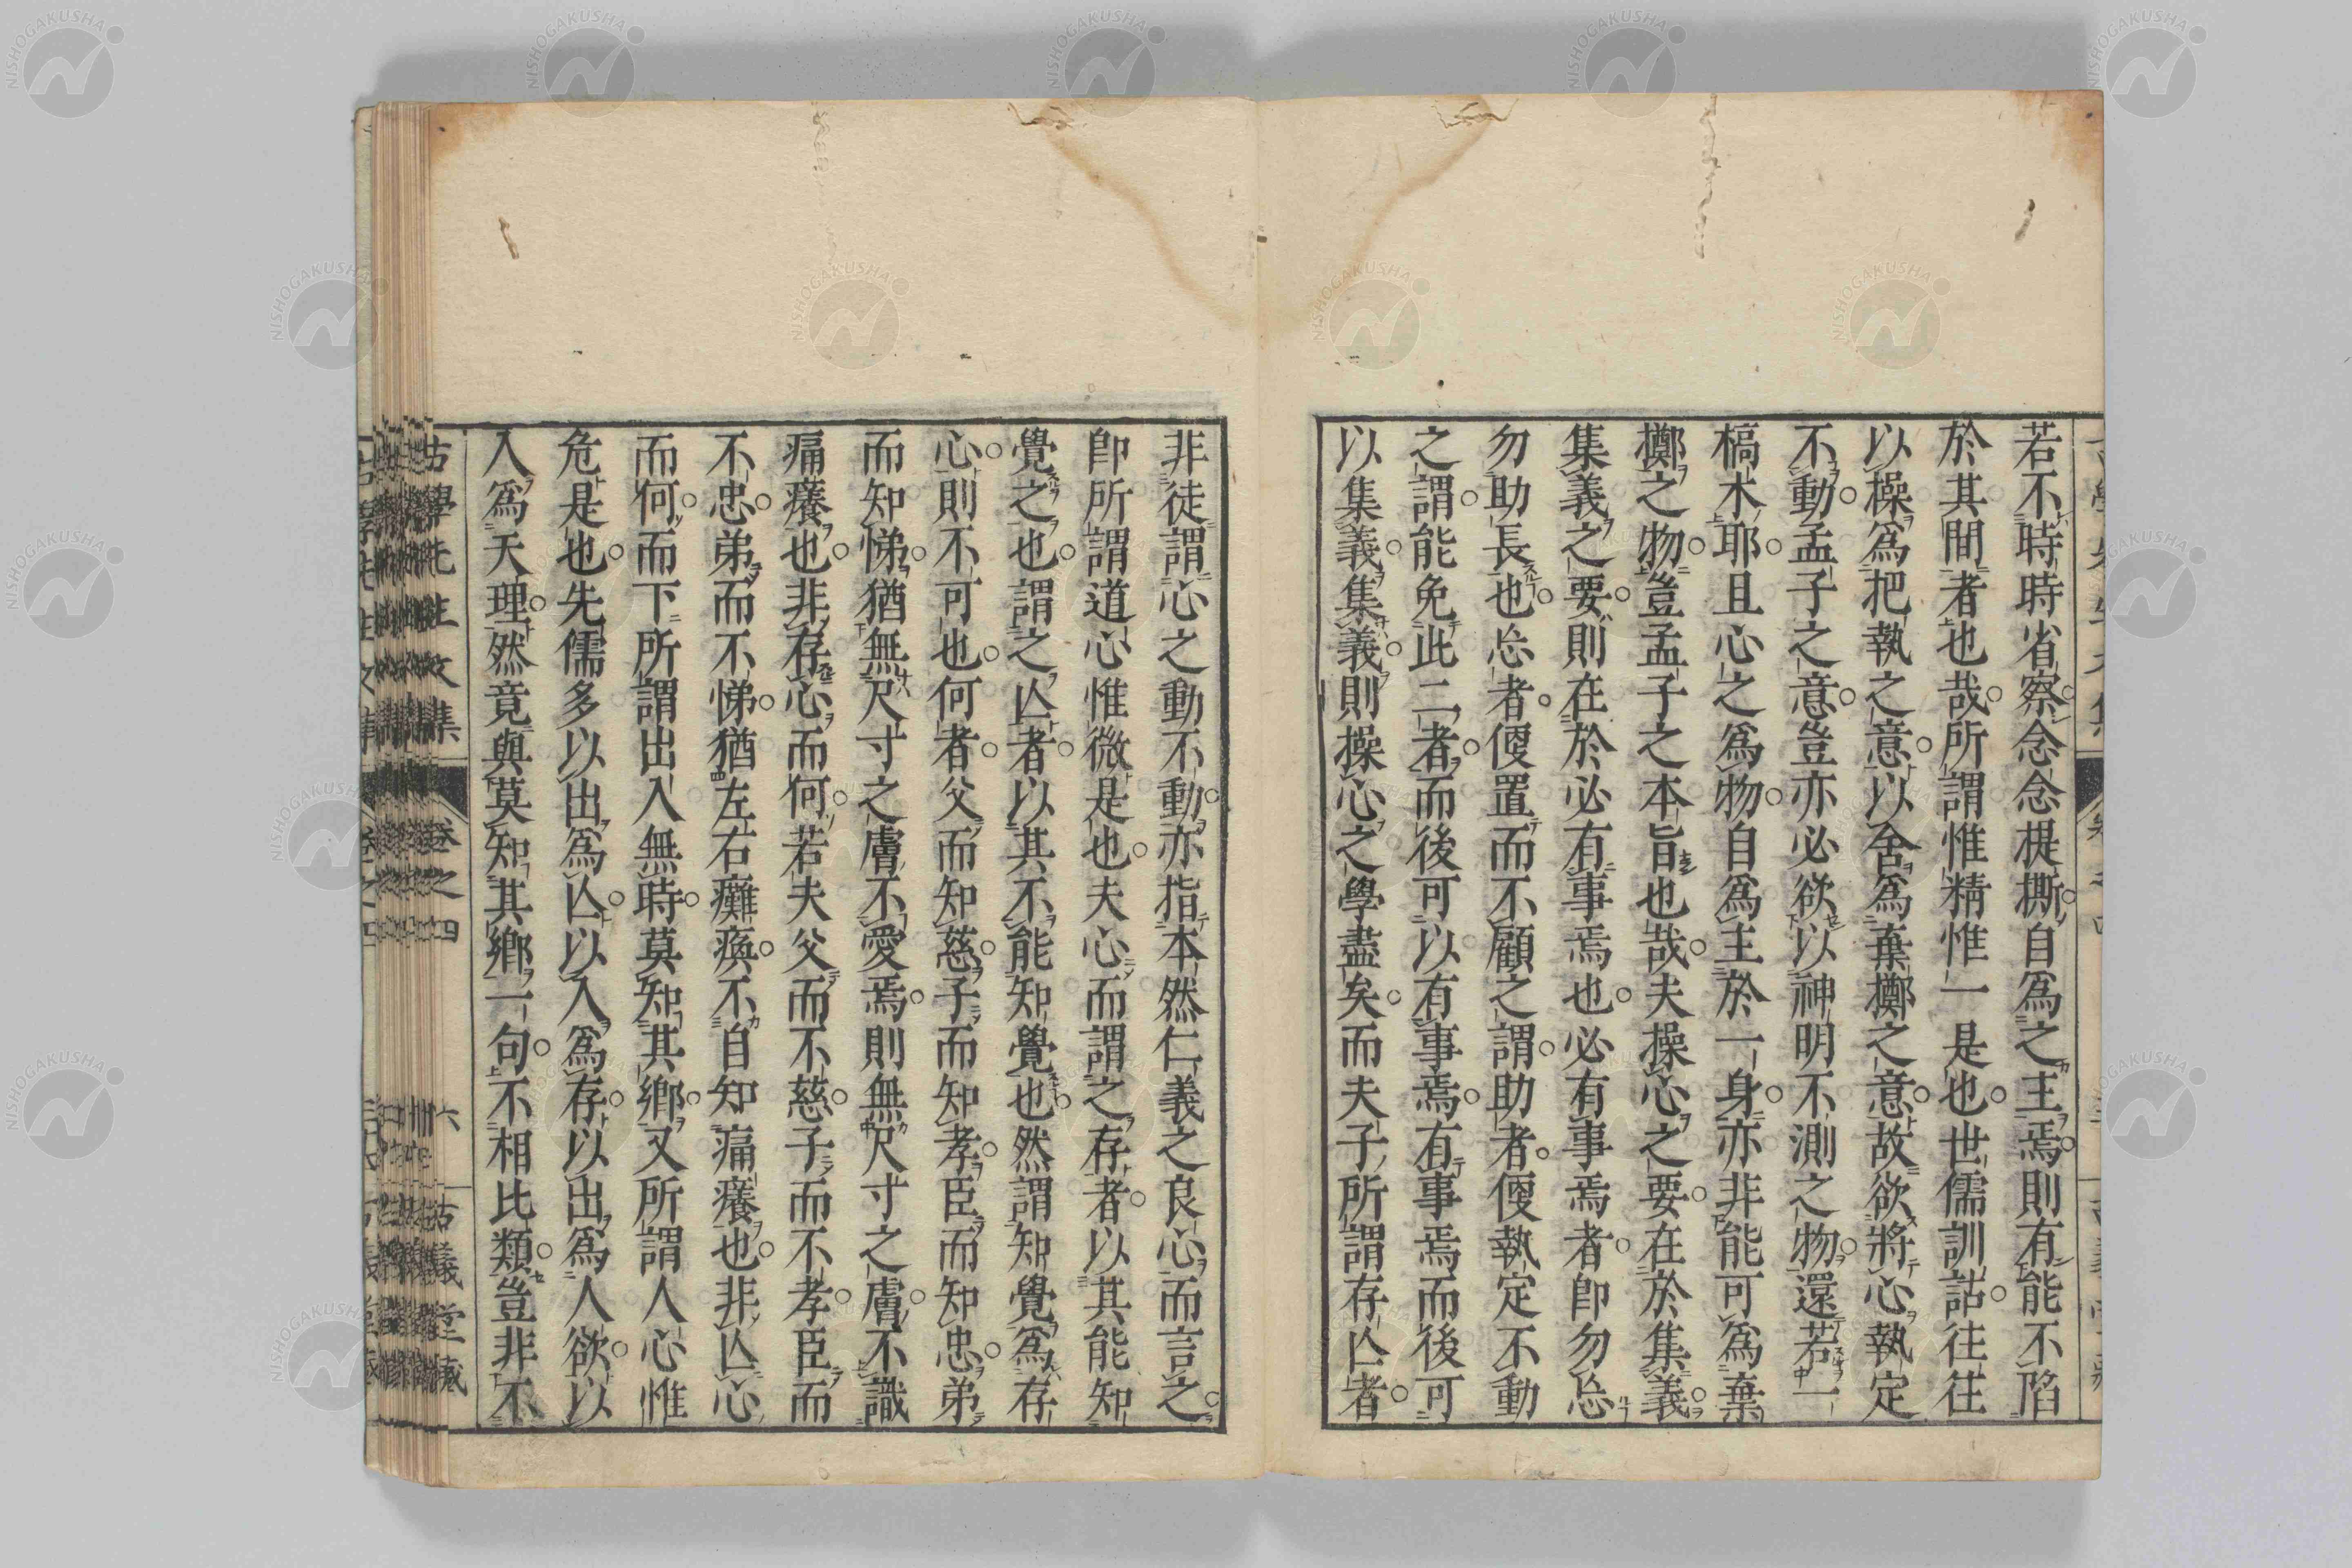 若不時時省察念念提撕自爲之主焉則有能不陷
於其間者也哉所謂惟精惟一是也世儒訓詁往往
以操爲把執之意以舍爲棄擲之意故欲將心執定
不動孟子之意豈亦必欲以神明不測之物還若一
槁木耶且心之爲物自爲主於一身亦非能可爲棄
擲之物豈孟子之本旨也哉夫操心之要在於集義
集義之要則在於必有事焉也必有事焉者卽勿忘
勿助長也忘者便置而不顧之謂助者便執定不動
之謂能免此二者而後可以有事焉有事焉而後可
以集義集義則操心之學盡矣而夫子所謂存亾者
非徒謂心之動不動亦指本然仁義之良心而言之
卽所謂道心惟微是也夫心而謂之存者以其能知
覺之也謂之亾者以其不能知覺也然謂知覺爲存
心則不可也何者父而知慈子而知孝臣而知忠弟
而知悌猶無尺寸之膚不愛焉則無尺寸之膚不識
痛癢也非存心而何若夫父而不慈子而不孝臣而
不忠弟而不悌猶左右癱瘓不自知痛癢也非亾心
而何而下所謂出入無時莫知其鄉又所謂人心惟
危是也先儒多以出爲亾以入爲存以出爲人欲以
入爲天理然竟與莫知其鄉一句不相比類豈非不
古學先生文集 卷之四 六 古義堂藏
NISHOGAKUSHA